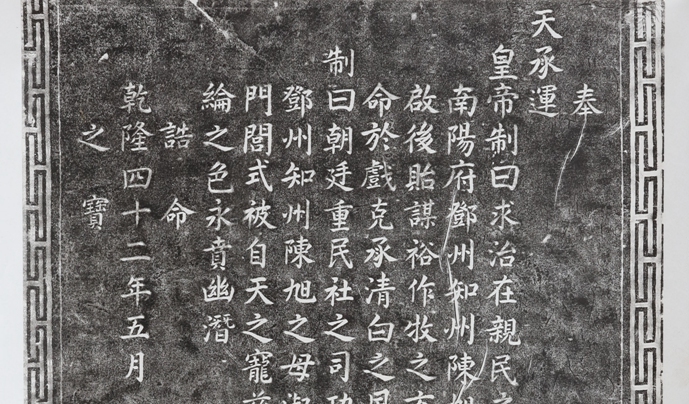 奉
天承運
皇帝制曰求治在親民之
南陽府鄧州知州陳旭
啟後貽謀裕作牧之方
命於戲克承清白之風
制曰朝廷重民社之司功
鄧州知州陳旭之母淑
門閭式被自天之寵茲
綸之色永賁幽潛
誥命
乾隆四十二年五月
之寶